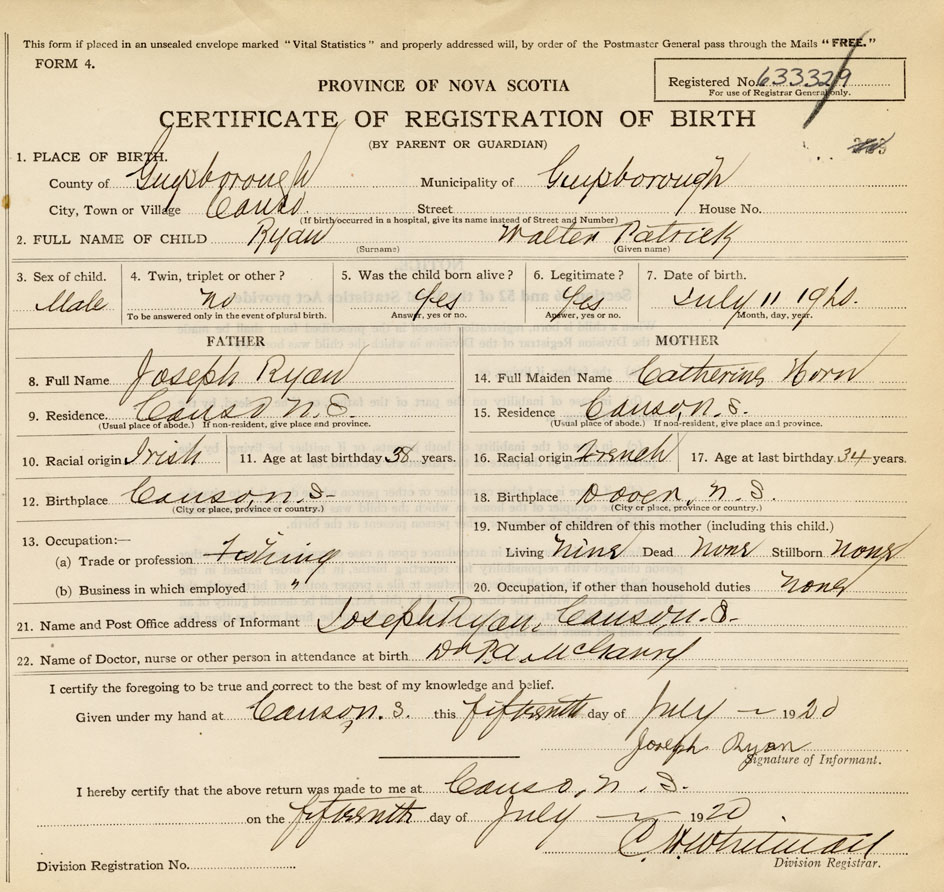 This form if placed in an unsealed envelope marked "Vital Statistics" and properly addressed will, by order of the Postmaster General pass through the Mails "FREE."
FORM 4.
Registered No. 633329
For use of Registrar General only.
PROVINCE OF NOVA SCOTIA
CERTIFICATE OF REGISTRATION OF BIRTH
(BY PARENT OR GUARDIAN)
1. PLACE OF BIRTH.
County of Guysborough Municipality of Guysborough
City, Town or Village Canso. Street House No.
(If birth occurred in a hospital, give its name instead of Street and Number)
2. FULL NAME OF CHILD Ryan Walter Patrick
(Surname) (Given name)
3. Sex of child. 4. Twin, triplet or other? 5. Was the child born alive? 6. Legitimate? 7. Date of birth.
Male no Yes Yes July 11 1920.
To be answered only in the event of plural birth. Answer, yes or no. Answer, yes or no. Month, day, year.
FATHER MOTHER
8. Full Name Joseph Ryan 14. Full Maiden Name Catherine Horn
9. Residence. Canso N.S. 15. Residence Canso, N.S.
(Usual place of abode.) If non-resident, give place and province. (Usual place of abode.) If non-resident, give place and province.
10. Racial origin Irish 11. Age at last birthday 38 years. 16. Racial origin French 17. Age at last birthday 34 years.
12. Birthplace Canso N.S. 18. Birthplace Dover, N.S.
(City or place, province or country.) (City or place, province or country.)
13. Occupation:— 19. Number of children of this mother (including this child.)
(a) Trade or profession Fishing Living nine Dead none Stillborn none
(b) Business in which employed " 20. Occupation, if other than household duties none
21. Name and Post Office address of Informant Joseph Ryan, Canso N.S.
22. Name of Doctor, nurse or other person in attendance at birth Dr P.A.
I certify the foregoing to be true and correct to the best of my knowledge and belief.
Given under my hand at Canso N.S. this fifteenth day of July 1920
Joseph Ryan
Signature of Informant.
I hereby certify that the above return was made to me at Canso, N.S.
on the fifteenth day of July 1920
C. H. Whitman
Division Registration No. Division Registrar.